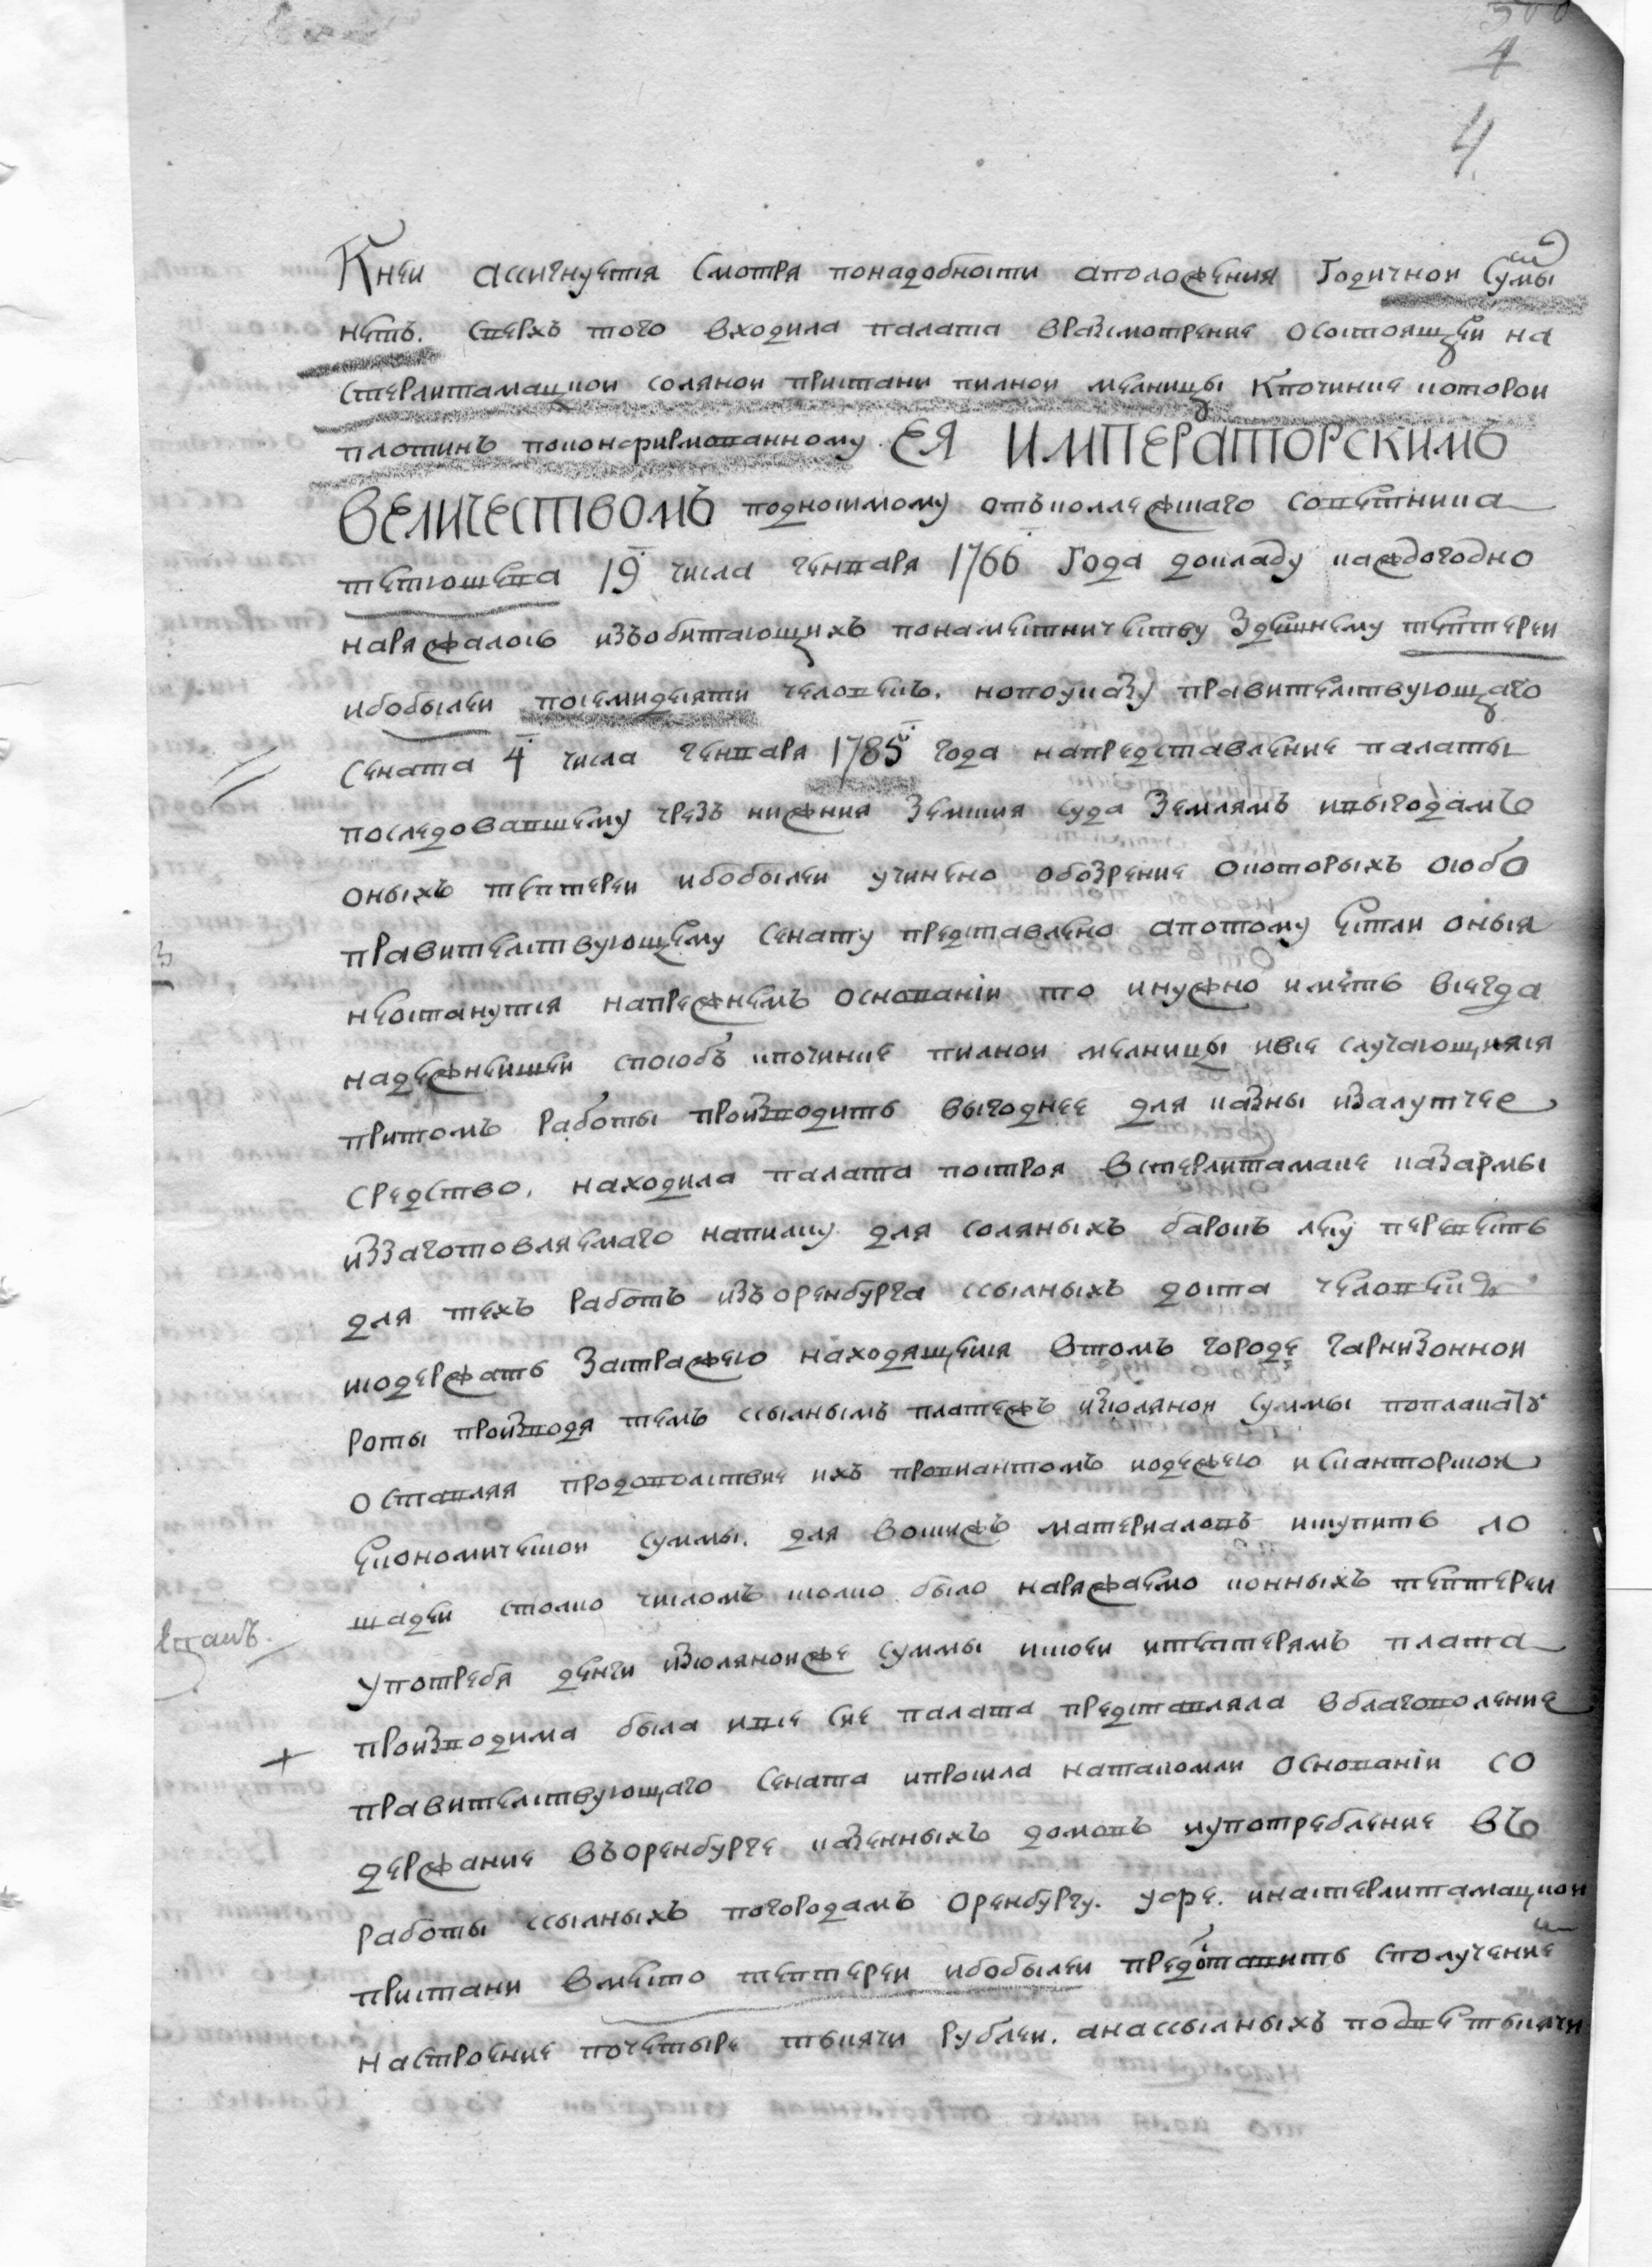 500
4
4
Кнеи ассигнуется смотря понадобности аположения годичнои сумы
нетъ. сверхъ того входила палата вразсмотрение осостоящеи на
стерлитамацкои солянои пристани пилнои мелницы кпочинке которои
плотинъ поконфирмованному ЕЯ ИМПЕРАТОРСКИМЪ
ВЕЛИЧЕСТВОМЪ подносимому отъколлежшаго советника
тетюшева 19 числа генваря 1766 года докладу каждогодно
наряжалось изъобитающихъ понаместничеству здешнему тептереи
ибобылеи посемидесяти человекъ. нопоуказу правителствующаго
сената 4 числа генваря 1785 года напредставление палаты
последовавшему чрезъ нижния земския суда землямъ ивыгодамъ
оныхъ тептереи ибобылеи учинено обозрение окоторыхъ особо
правителствующему сенату представлено апотому естли оныя
неостанутся напрежнемъ основаніи то инужно иметь всегда
надежнеишеи способъ кпочинке пилнои мелницы ивсе случающияся
притомъ работы производить выгоднее для казны изалутчее
средство. находила палата построя встерлитамаке казармы
иззаготовляемаго напилку для соляныхъ барокъ лесу перевесть
для техъ работъ изъоренбурга ссылныхъ доста человекъ
исодержать застражею находящеися втомъ городе гарнизоннои
роты производя темъ ссылнымъ платежъ изсолянои суммы поплакату
оставляя продоволствие ихъ провиантомъ иодежею исканторскои
економическои суммы. для вошихъ материаловъ искупить ло
шадеи столко числомъ колко было наряжаемо конныхъ тептереи
употребя денги изсоляноиже суммы искоеи итептерямъ плата
производима была ивсе сие палата представляла вблаговоление
правителствующаго сената ипросила натакомли основаніи со
держание въоренбурге казенныхъ домовъ иупотребление въ
работы ссылныхъ погородамъ оренбургу. уфе. инастерлитамацкои
пристани вместо тептереи ибобылеи предоставить сполучение
настроение почетыре тысячи рублеи. анассылныхъ подве тысячи